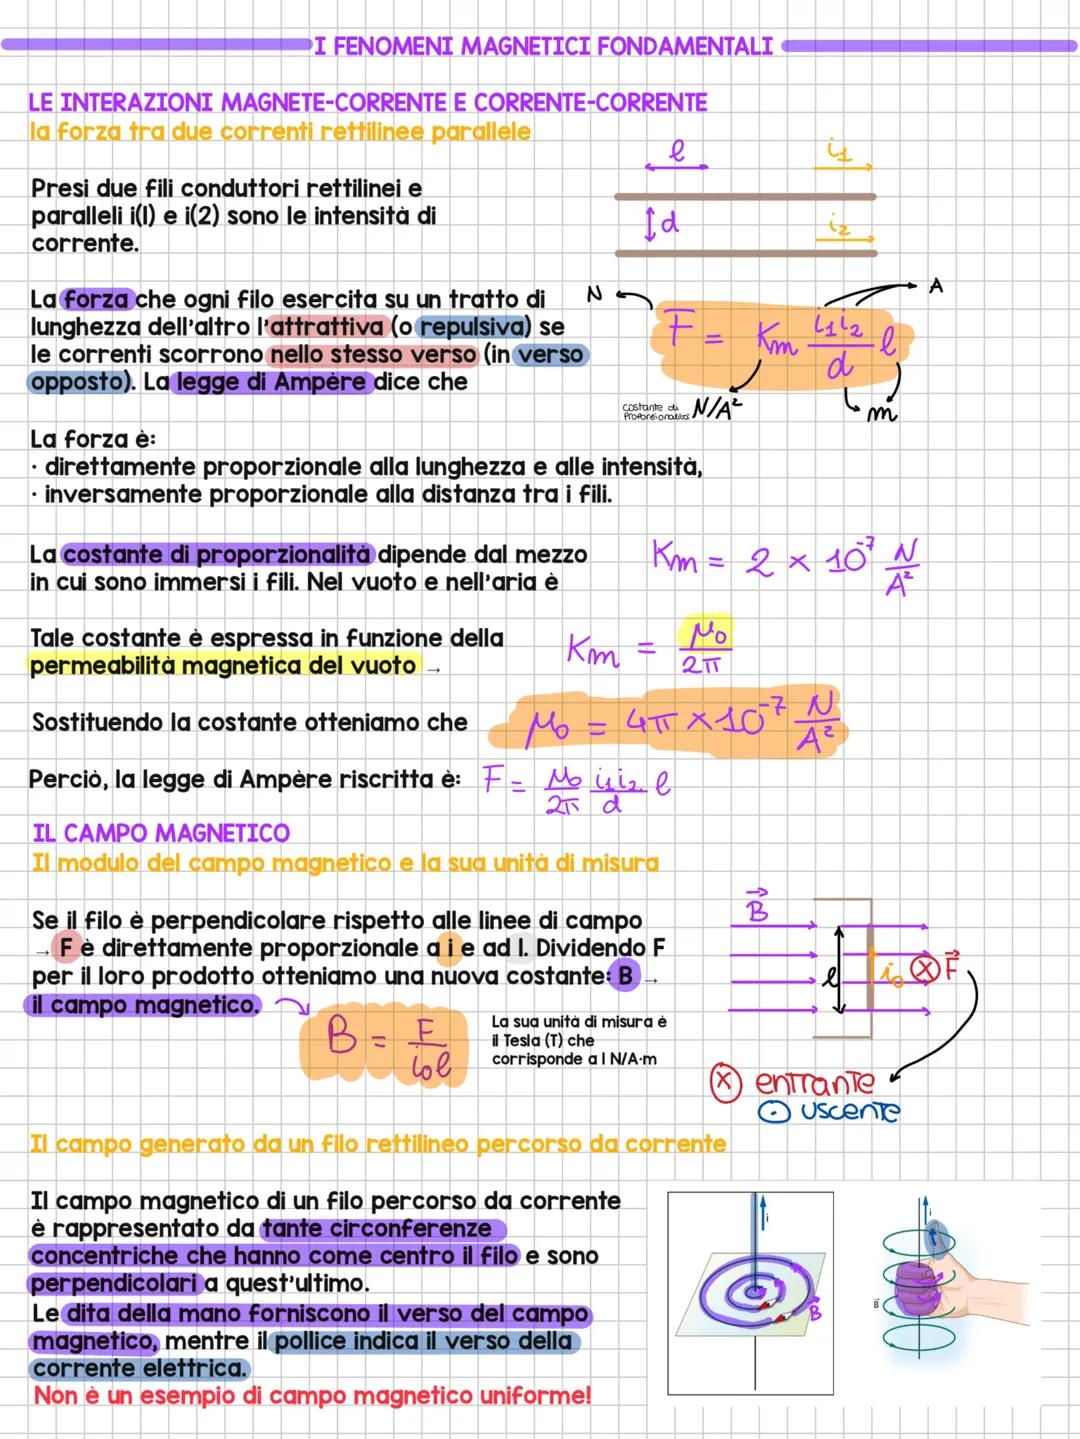 I FENOMENI MAGNETICI FONDAMENTALI
LE INTERAZIONI MAGNETE-CORRENTE E CORRENTE-CORRENTE
la forza tra due correnti rettilinee parallele
l
i1
Presi due fili conduttori rettilinei e
paralleli i(1) e i(2) sono le intensità di
corrente.
d
i2
La forza che ogni filo esercita su un tratto di
lunghezza dell'altro l'attrattiva (o repulsiva) se
le correnti scorrono nello stesso verso (in verso
opposto). La legge di Ampère dice che
N
A
F = Km i1i2/d l
costante di
proporzionalità N/A²
m
La forza è:
· direttamente proporzionale alla lunghezza e alle intensità,
· inversamente proporzionale alla distanza tra i fili.
La costante di proporzionalità dipende dal mezzo
in cui sono immersi i fili. Nel vuoto e nell'aria è
Km = 2 × 10⁻⁷ N/A²
Tale costante è espressa in funzione della
permeabilità magnetica del vuoto →
Km = μ0/2π
Sostituendo la costante otteniamo che
μ0 = 4π × 10⁻⁷ N/A²
Perciò, la legge di Ampère riscritta è:
F = μ0/2π i1i2/d l
IL CAMPO MAGNETICO
Il modulo del campo magnetico e la sua unità di misura
Se il filo è perpendicolare rispetto alle linee di campo
→ F è direttamente proporzionale a i e ad l. Dividendo F
per il loro prodotto otteniamo una nuova costante: B →
il campo magnetico.
B = F/i0l
La sua unità di misura è
il Tesla (T) che
corrisponde a 1 N/A·m
B
l
i0
F
x entrante
uscente
Il campo generato da un filo rettilineo percorso da corrente
Il campo magnetico di un filo percorso da corrente
è rappresentato da tante circonferenze
concentriche che hanno come centro il filo e sono
perpendicolari a quest'ultimo.
Le dita della mano forniscono il verso del campo
magnetico, mentre il pollice indica il verso della
corrente elettrica.
Non è un esempio di campo magnetico uniforme!
i
B
i
B